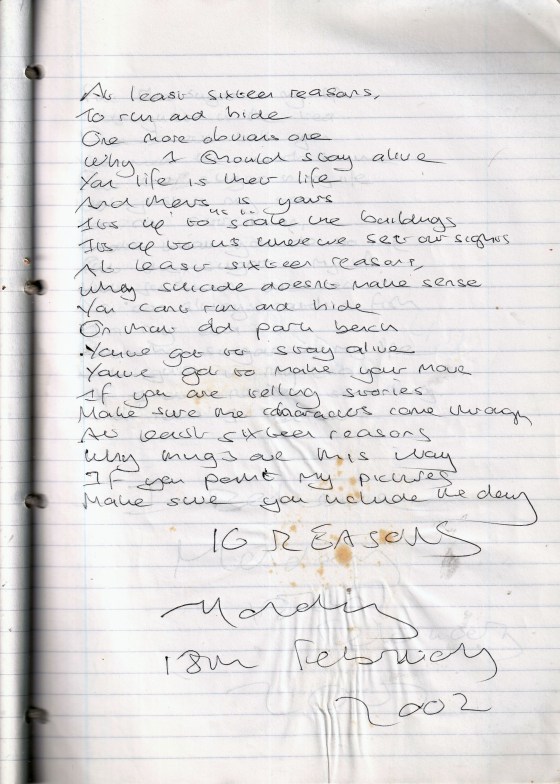 At least sixteen reasons,
To run and hide
One more obvious one
Why I should stay alive
Your life is their life
And theirs is yours
Its up to us to scale the buildings
Its up to us where we set our sights
At least sixteen reasons,
Why suicide doesnt make sense
You cant run and hide
On that old park bench
Youve got to stay alive
Youve got to make your move
If you are telling stories
Make sure the characters come through
At least sixteen reasons
Why things are this way
If you paint my pictures
Make sure you include the
16 REASONS
18th February
2002